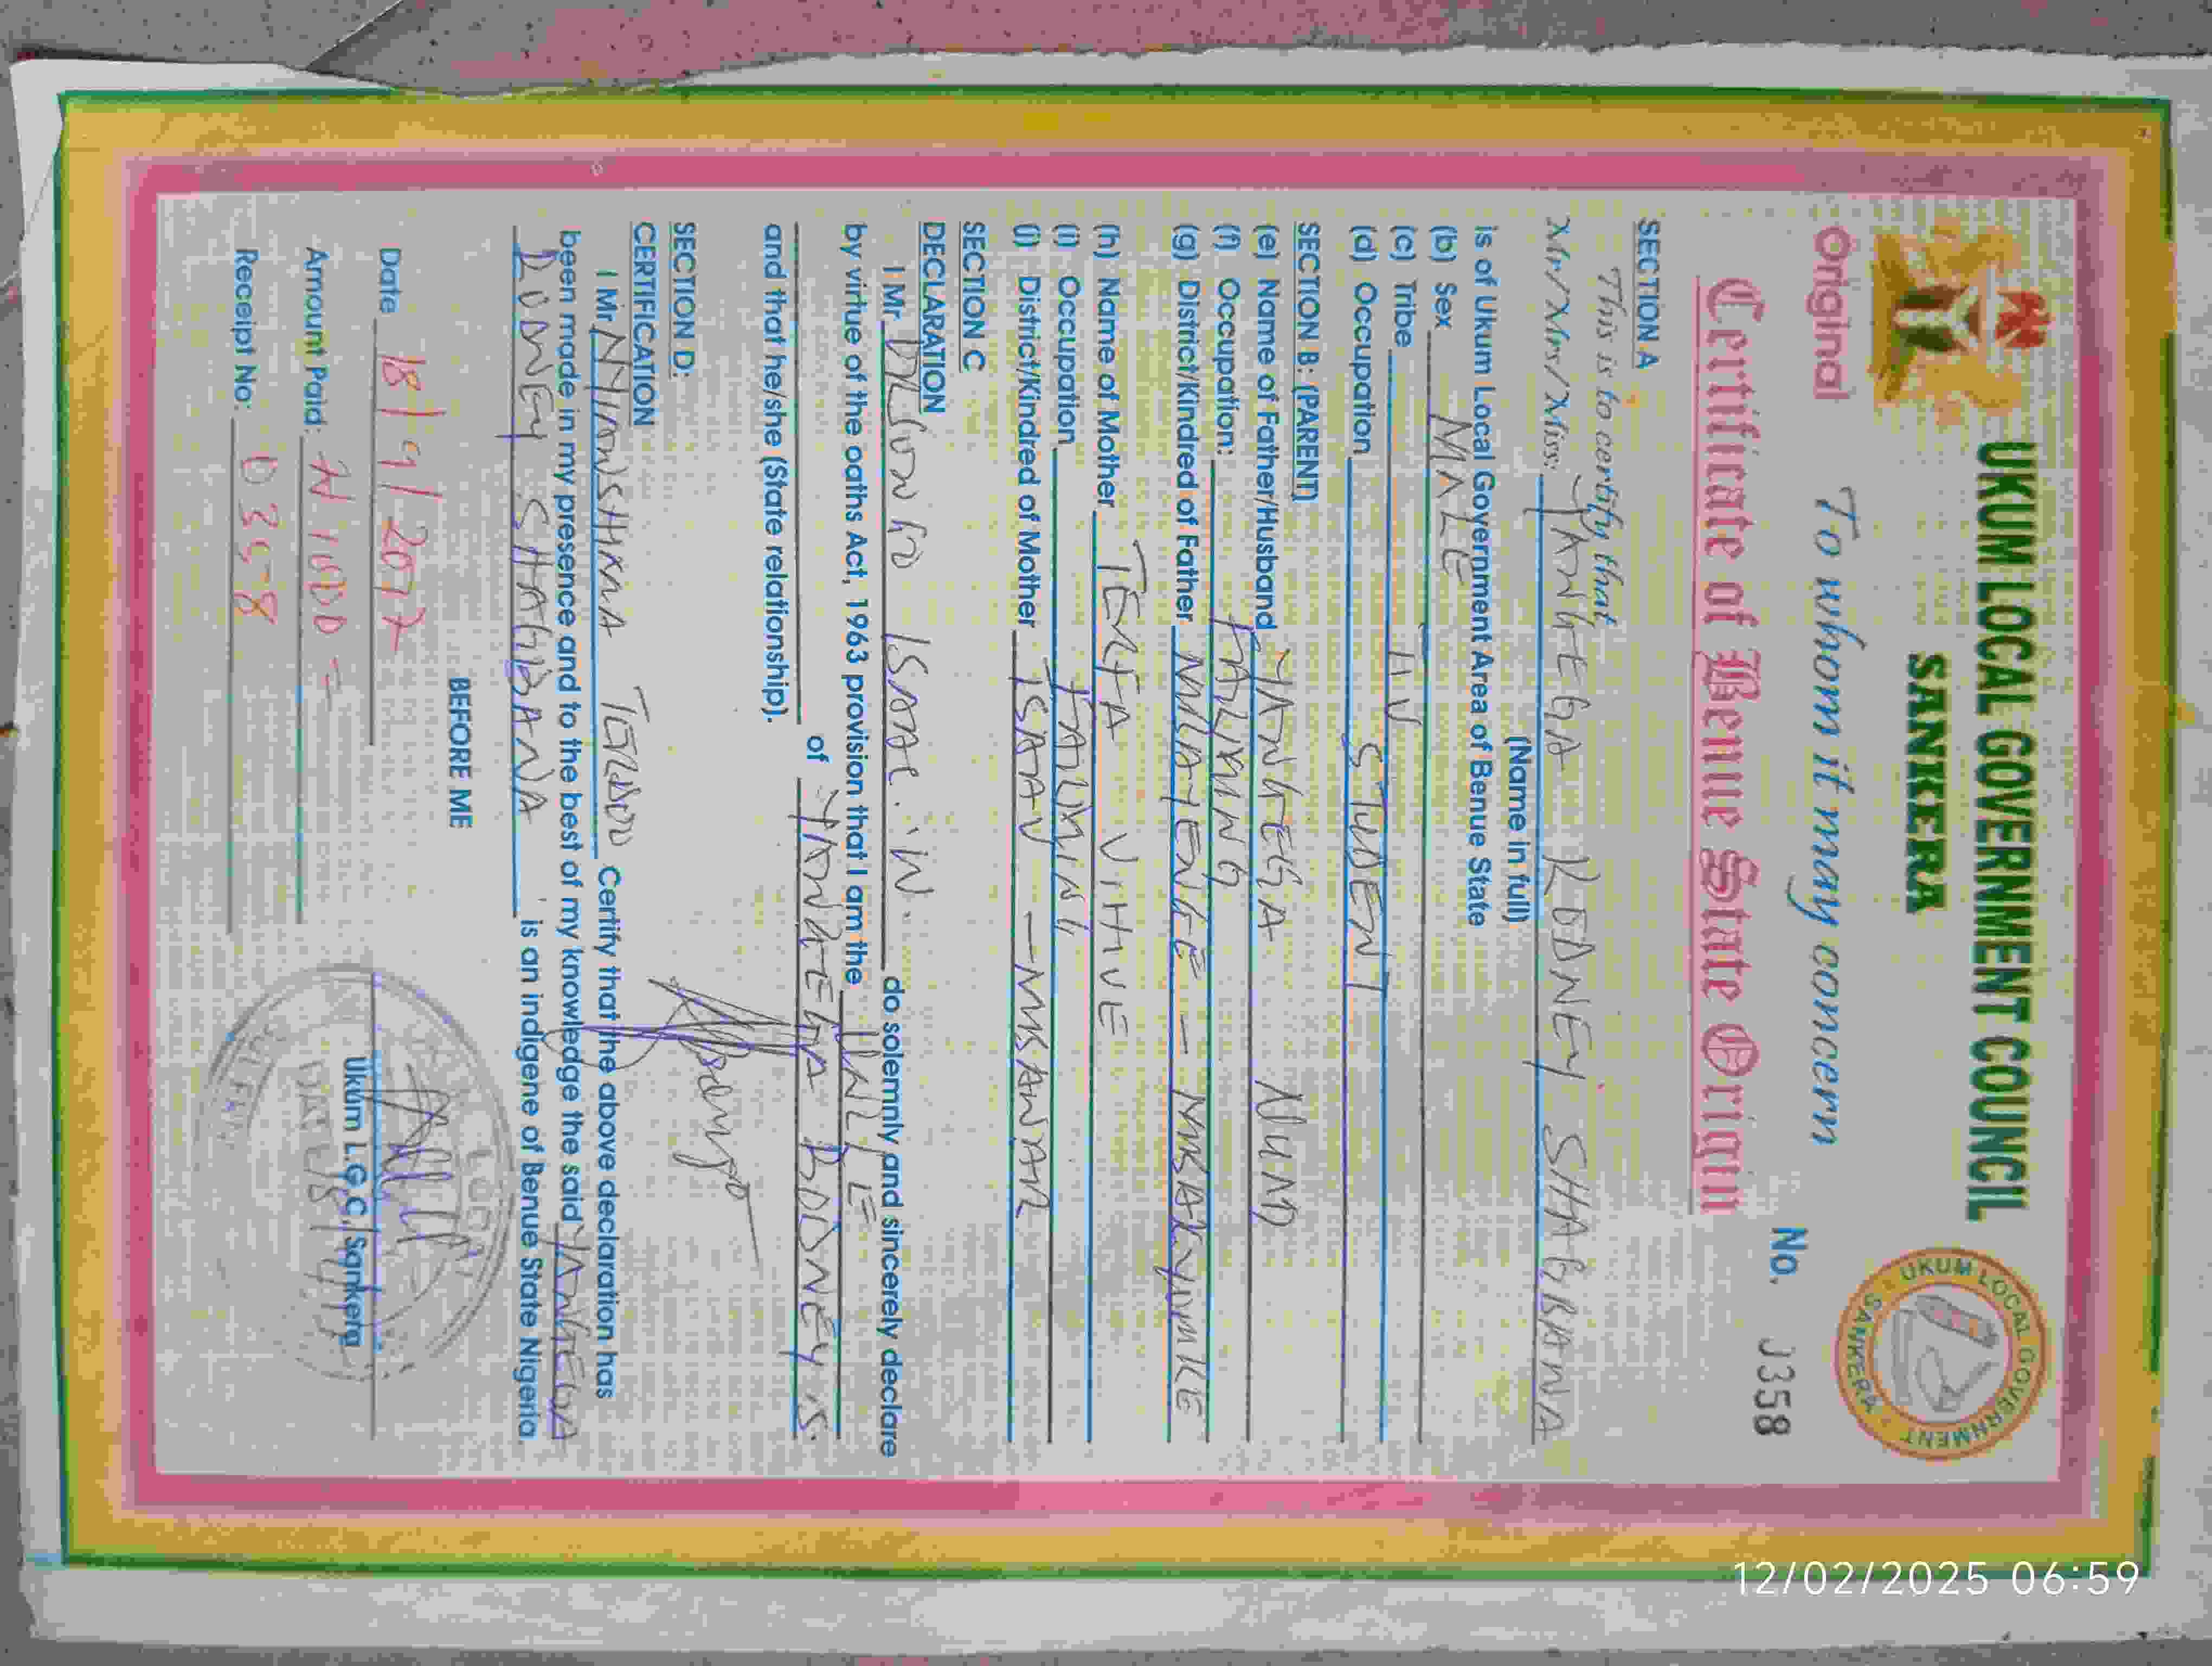 UKUM LOCAL GOVERNMENT COUNCIL
SANKERA
UKUM LOCAL GOVERNMENT
SANKERA
Original
To whom it may concern
No. J358
Certificate of Benue State Origin
SECTION A
This is to certify that
Mr/Mrs/Miss: YANGEGA RODNEY SHAGBANA
(Name in full)
is of Ukum Local Government Area of Benue State
(b) Sex MALE
(c) Tribe TIV
(d) Occupation STUDENT
SECTION B: (PARENT)
(e) Name of Father/Husband YANGEGA
(f) Occupation: FARMING
(g) District/Kindred of Father
(h) Name of Mother
(i) Occupation FARMING
(j) District/Kindred of Mother TSAAV
SECTION C
DECLARATION
I Mr ISAAC do solemnly and sincerely declare
by virtue of the oaths Act, 1963 provision that I am the UNCLE
of YANGEGA RODNEY .S.
and that he/she (State relationship).
SECTION D:
CERTIFICATION
I Mr Certify that the above declaration has
been made in my presence and to the best of my knowledge the said YANGEGA
RODNEY SHAGBANA is an indigene of Benue State Nigeria.
BEFORE ME
Date 18/9/2017
Amount Paid: N1000=
Receipt No: 0358
Ukum L.G.C. Sankera
12/02/2025 06:59